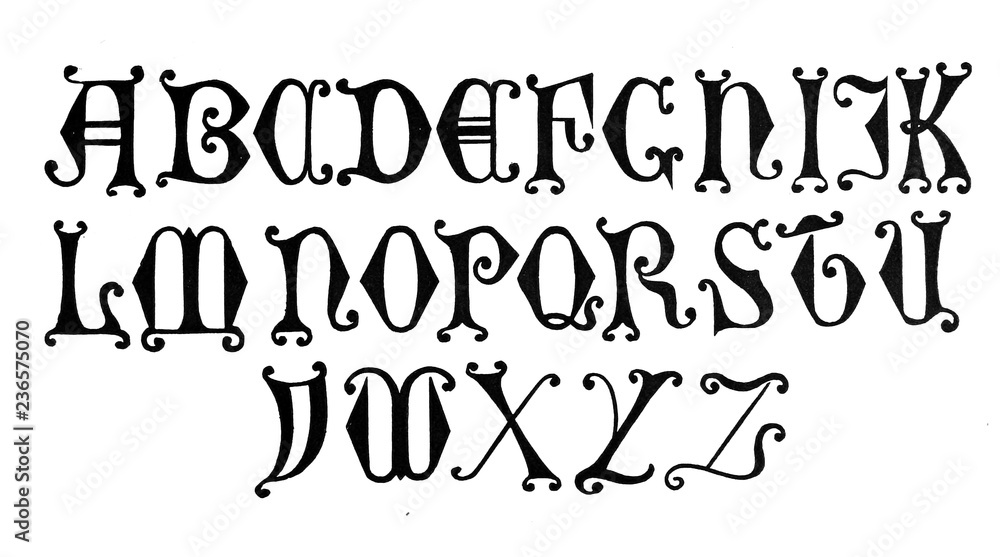 ABCDEFGHIJK
LMNOPQRSTU
VWXYZ
Adobe Stock | #236575070